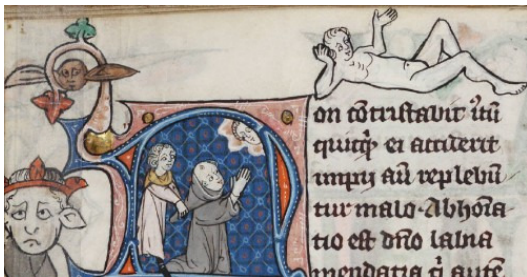 Non cōtristabit iustū
quicq̇ ei acciderit
impii aū replebū
tur malo. Abhoīa
tio est dño labia
mendatia q̇ autē